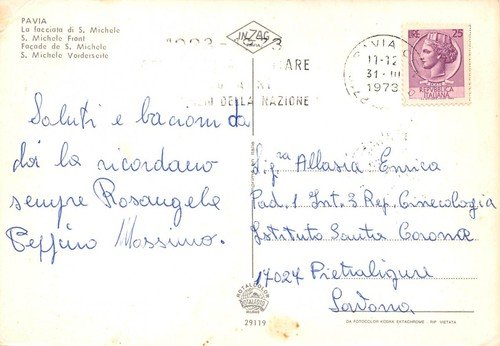 PAVIA
La facciata di S. Michele
S. Michele Front
Façade de S. Michele
S. Michele Vorderseite
INZAG
1923-1973
ARE
DELLA NAZIONE
PAVIA
11-12
31-III
1973
LIRE 25
REPUBBLICA
ITALIANA
Saluti e bacioni da
chi la ricordano
sempre Rosangela
Peppino Massimo.
Sig.ra Allasia Enrica
Pad. 1 Int. 3 Rep. Ginecologia
Istituto Santa Corona
17027 Pietraligure
Savona
ROTALCOLOR
29119
DA FOTOCOLOR KODAK EKTACHROME - RIP. VIETATA